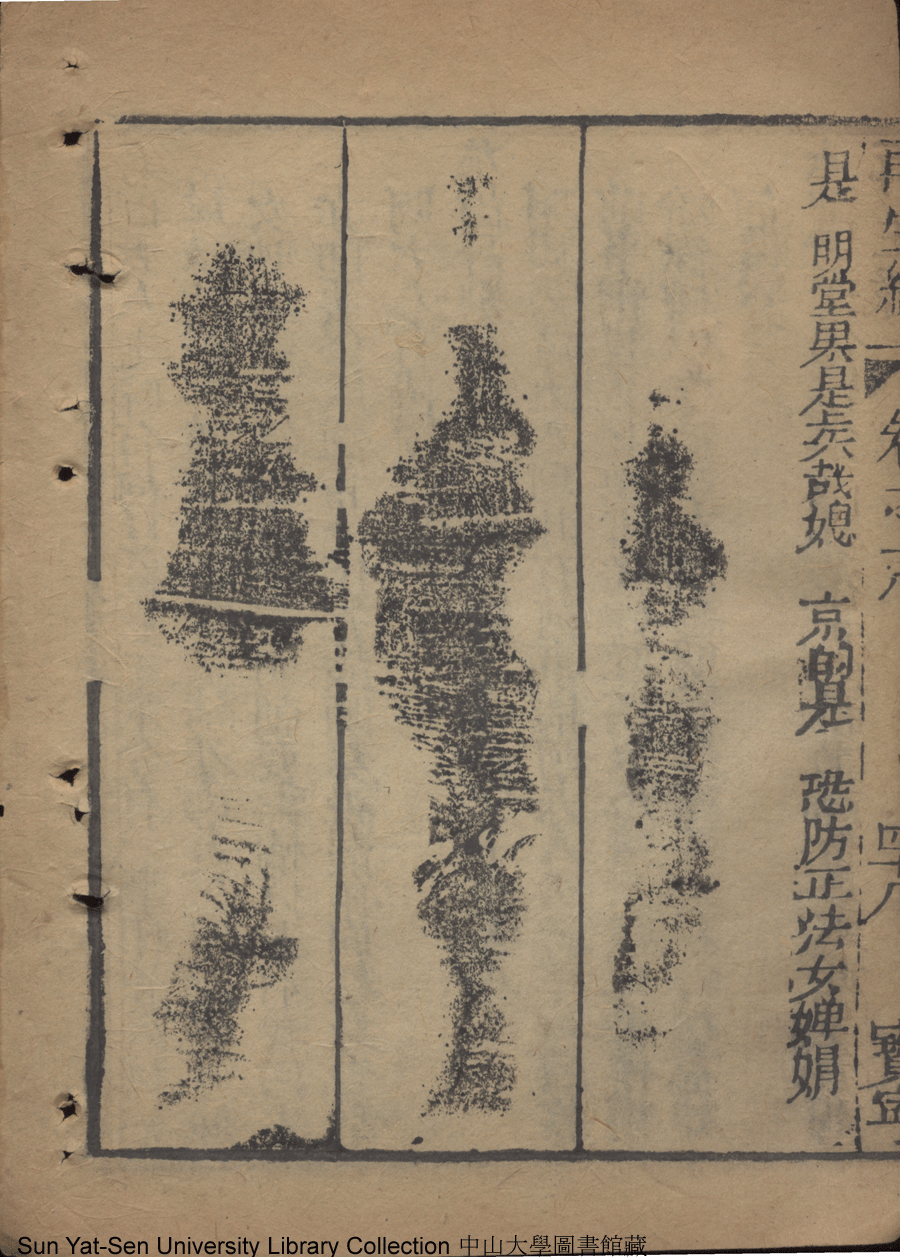 再生緣 卷 六 四十八 寶
是 明堂果是兵哉媳 京的是 恐防正法女嬋娟
Sun Yat-Sen University Library Collection 中山大學圖書館藏